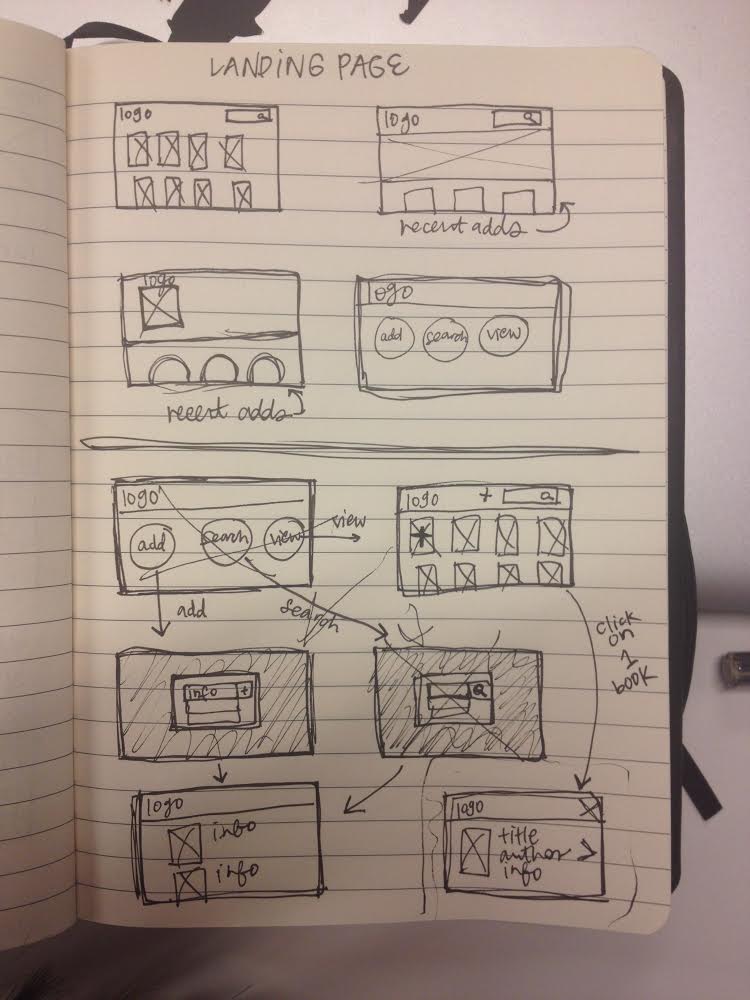 LANDING PAGE
logo
logo
recent adds
logo
recent adds
logo
add search view
logo
add search view
view
logo +
add
search
click
on
1
book
info +
logo
info
info
logo
title
author >
info